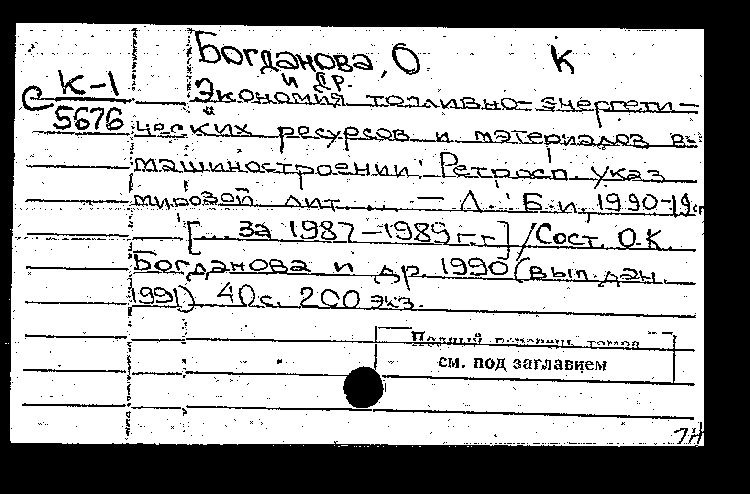 Богданова, О К
и др.
С К-1
5676
Экономия топливно-энергети-
ческих ресурсов и материалов в
машиностроении: Ретросп. указ
мировой лит. ... — Л. : Б.и., 1990-19
[... за 1987-1989 г.г.] / Сост. О.К.
Богданова и др. 1990 (вып. дан.
1991) 40 с. 200 экз.
Полный перечень томов
см. под заглавием